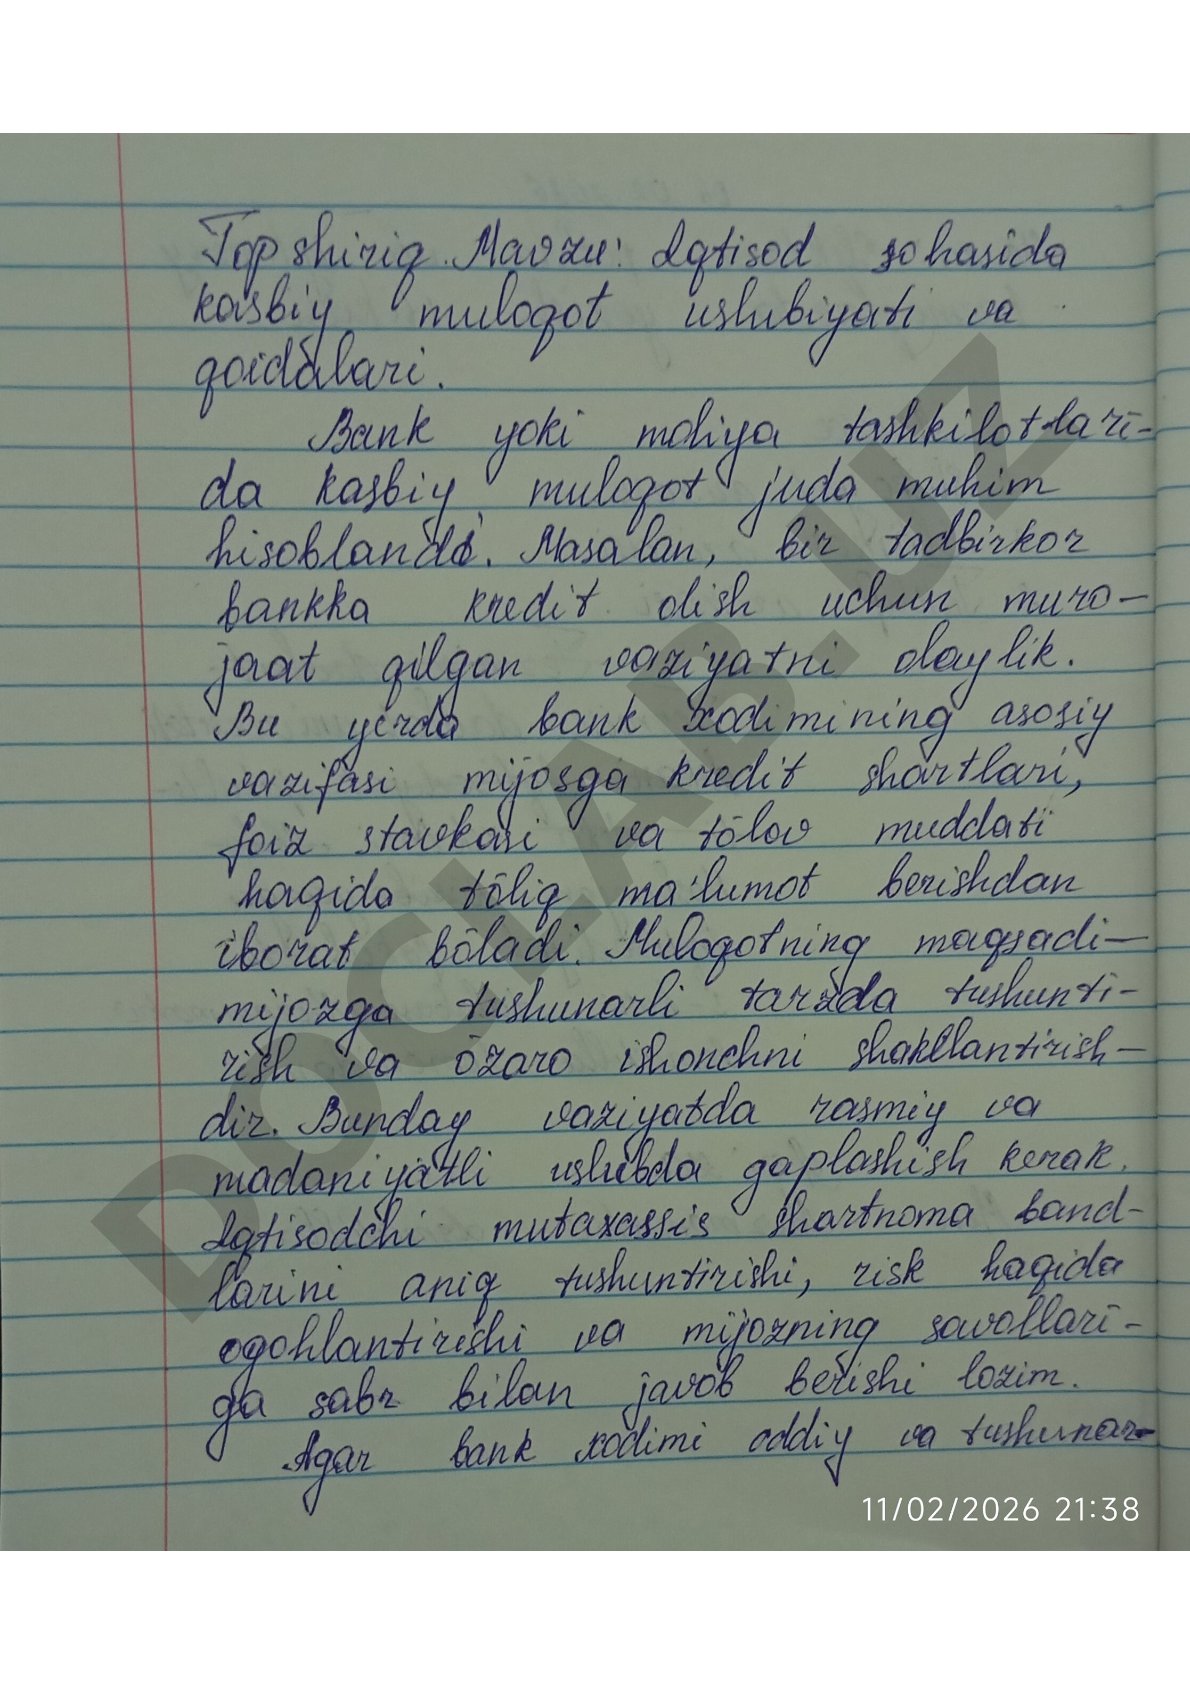 Topshiriq. Mavzu: Iqtisod sohasida
kasbiy muloqot uslubiyati va
qoidalari.
Bank yoki moliya tashkilotlari-
da kasbiy muloqot juda muhim
hisoblandi. Masalan, bir tadbirkor
bankka kredit olish uchun muro-
jaat qilgan vaziyatni olaylik.
Bu yerda bank xodimining asosiy
vazifasi mijosga kredit shartlari,
foiz stavkasi va tōlov muddati
haqida tōliq ma'lumot berishdan
iborat bōladi. Muloqotning maqsadi-
mijozga tushunarli tarzda tushunti-
rish va ōzaro ishonchni shakllantirish-
dir. Bunday vaziyatda rasmiy va
madaniyatli uslubda gaplashish kerak.
Iqtisodchi mutaxassis shartnoma band-
larini aniq tushuntirishi, risk haqida
ogohlantirishi va mijozning savollari-
ga sabr bilan javob berishi lozim.
Agar bank xodimi oddiy va tushunar-
11/02/2026 21:38
DOCLAB.UZ